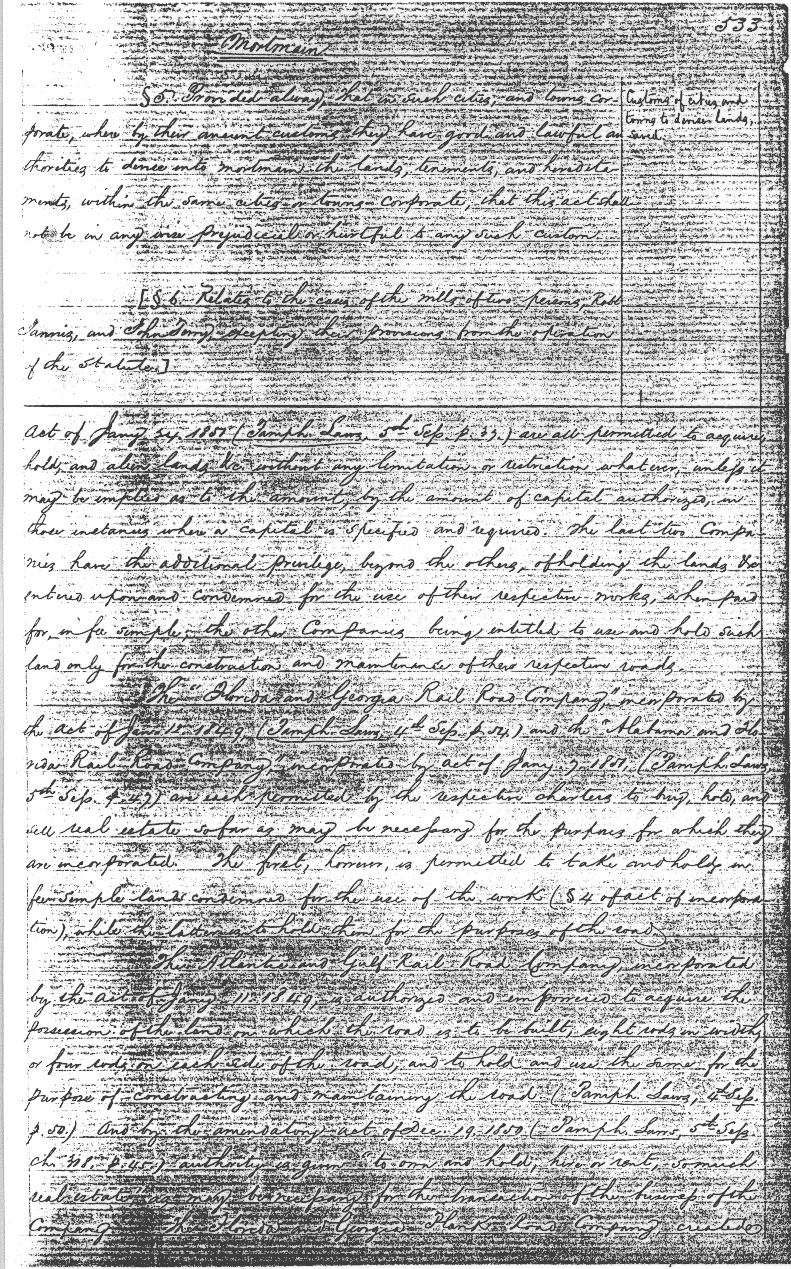 533
Mortmain
§5. Provided alway, that in such cities, and towns cor-
porate, where by their ancient customs they have good and lawful au
thorities to devise into mortmain the lands, tenements, and heredita-
ments, within the same cities or towns corporate, that this act shall
not be in any wise prejudicial or hurtful to any such custom.
Customs of cities and
towns to devise lands,
saved.
[§6. Relates to the cases of the wills of two persons, Robt
and John Terry, excepting their provisions from the operation
of the Statute.]
Act of Jany. 24. 1851 (Pamph. Laws, 5th Sep. p. 33.) are all permitted to acquire,
hold, and alien lands &c without any limitation or restriction whatever, unless it
may be implied as to the amount, by the amount of capital authorized, in
those instances where a capital is specified and required. The last two Compa-
nies have the additional privilege, beyond the others, of holding the lands &c
entered upon and condemned for the use of their respective works, when paid
for, in fee simple; the other Companies being entitled to use and hold such
land only for the construction and maintenance of their respective roads.
The "Florida and Georgia Rail Road Company," incorporated by
the act of Jan. 1849, (Pamph. Laws, 4th Sep. p. 54.) and the "Alabama and Flo
rida Rail Road Company," incorporated by act of Jany. 7. 1851, (Pamph. Laws,
5th Sep. p. 47) are each permitted by the respective charters to buy, hold, and
sell real estate so far as may be necessary for the purposes for which they
are incorporated. The first, however, is permitted to take and hold in
fee simple lands condemned for the use of the work (§4 of act of incorpora
tion), while the latter is to hold them for the purposes of the road.
The Atlantic and Gulf Rail Road Company, incorporated
by the act of Jany. 11. 1849, is authorized and empowered to acquire the
possession of the land on which the road is to be built, eight rods in width,
or four rods on each side of the road, and to hold and use the same for the
purpose of constructing and maintaining the road (Pamph. Laws, 4th Sep.
p. 50.) And by the amendatory act of Dec. 19. 1850 (Pamph. Laws, 5th Sep.
ch. 318. p. 45.) authority is given "to own and hold, hire or rent, so much
real estate as may be necessary for the transaction of the business of the
Company". The Florida and Georgia Plank Road Company, created